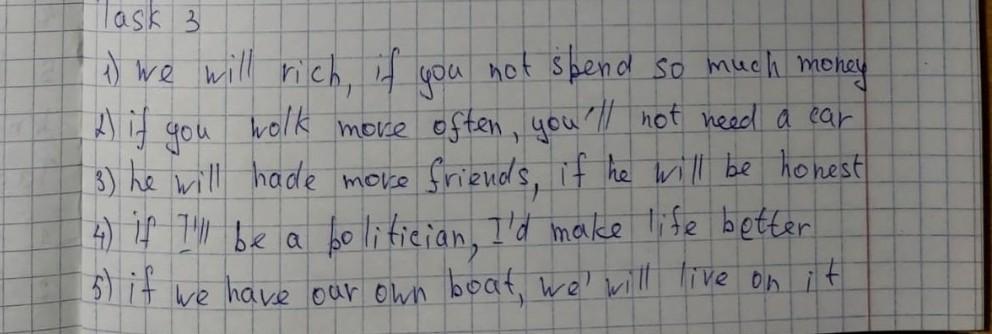 Task 3
1) we will rich, if you not spend so much money
2) if you wolk more often, you'll not need a car
3) he will hade more friends, if he will be honest
4) if I'll be a politician, I'd make life better
5) if we have our own boat, we' will live on it